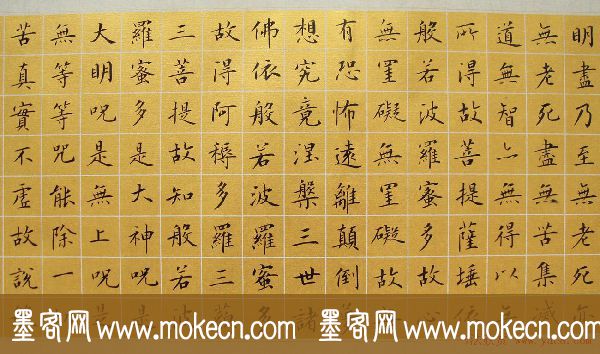 明盡乃至無老死亦
無老死盡無苦集滅
道無智亦無得以無
所得故菩提薩埵依
般若波羅蜜多故心
無罣礙無罣礙故
有恐怖遠離顛倒
想究竟涅槃三世諸
佛依般若波羅蜜多
故得阿耨多羅三藐
三菩提故知般若波
羅蜜多是大神咒是
大明咒是無上咒是
無等等咒能除一
苦真實不虛故說
墨客网 www.mokecn.com 墨客网 www.mokecn.com